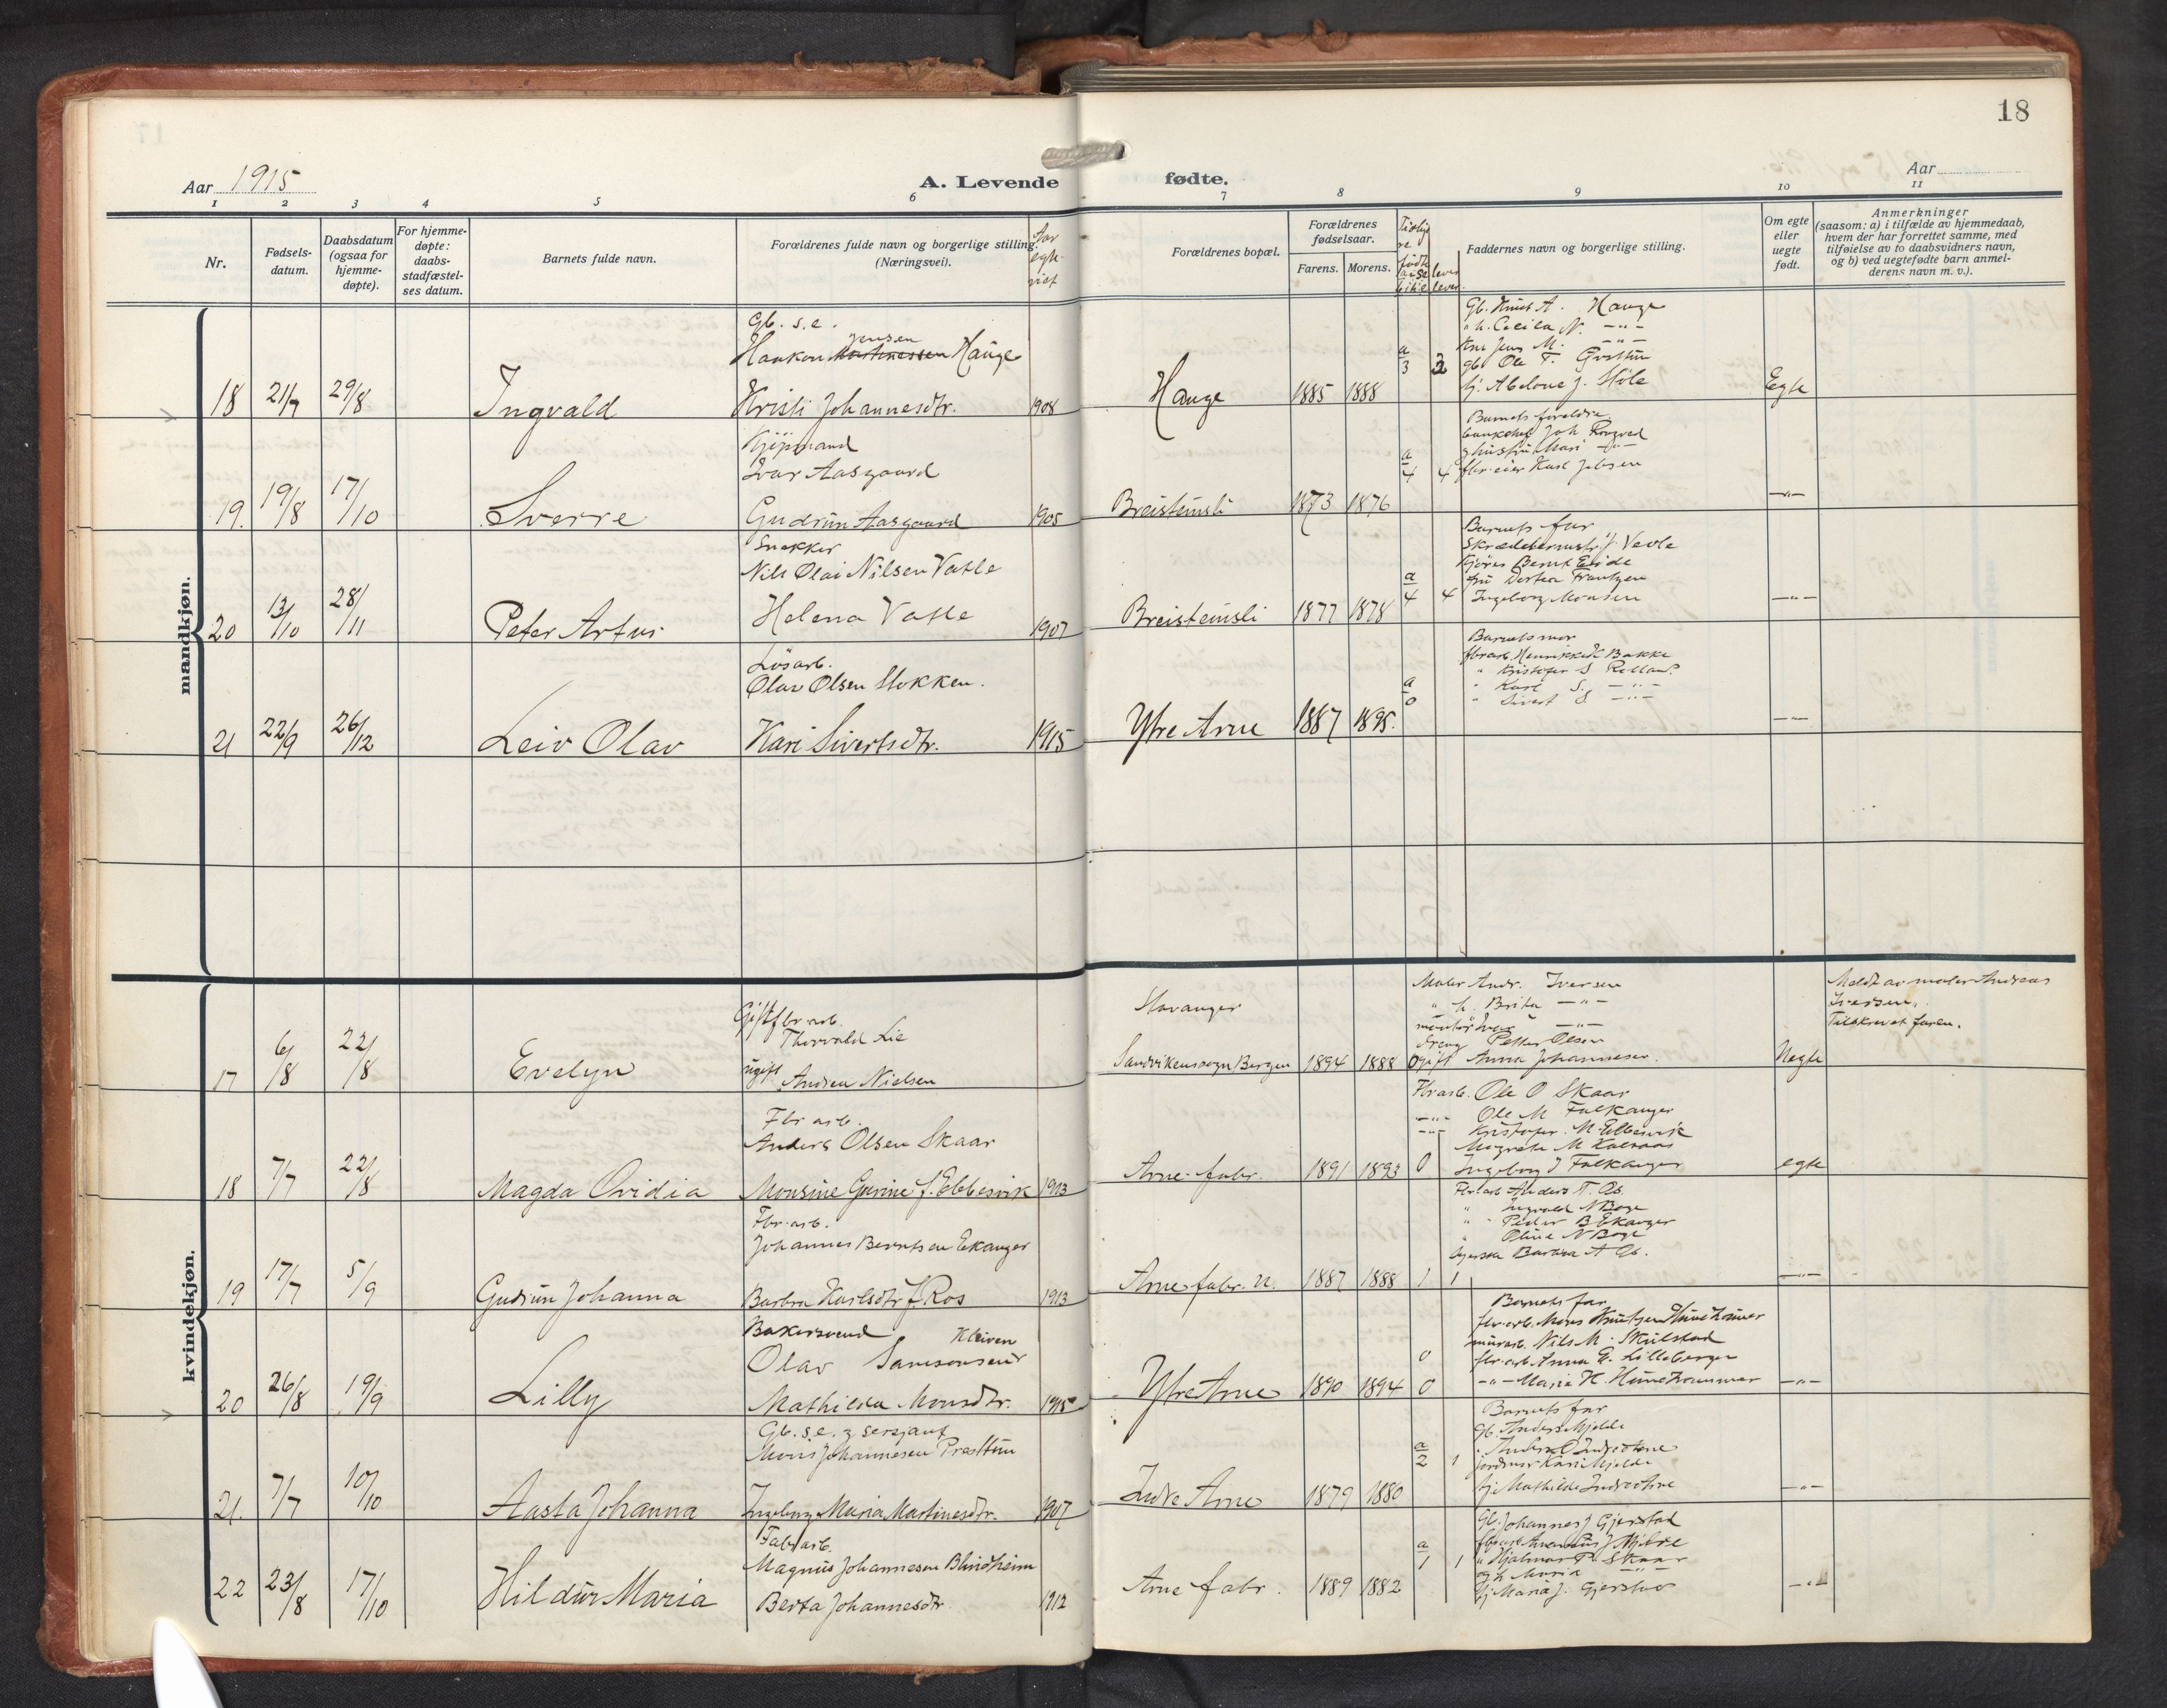 18
Aar 1915
A. Levende
fødte.
Aar
1 2 3 4 5 6 7 8 9 10 11
Nr.
Fødsels-
datum.
Daabsdatum
(ogsaa for
hjemme-
døpte).
For hjemme-
døpte:
daabs-
stadfæstel-
ses datum.
Barnets fulde navn.
Forældrenes fulde navn og borgerlige stilling.
(Næringsvei).
Aar
egte-
viet
Forældrenes bopæl.
Forældrenes
fødselsaar.
Farens. Morens.
Faddernes navn og borgerlige stilling.
Om egte
eller
uegte
født.
Anmerkninger
(saasom: a) i tilfælde av hjemmedaab,
hvem der har forrettet samme, med
tilføielse av to daabsvidners navn,
og b) ved uegtefødte barn anmel-
derens navn m. v.).
mandkjøn.
Gb. s.e.
Haakon Jensen Hauge
18 21/7 29/8 Ingvald Kristi Johannesdtr. 1908
Hauge 1885 1888 a 3 2
Gb. Knut A. Hauge
" h. Cecilia N. -"-
Jens M. -"-
gb. Ole T.
Egte
Kjöpmand
Ivar Aasgaard
19. 19/8 17/10 Sverre Gudrun Aasgaard 1905
Breisteinsli 1873 1876 a 4 4
Barnets foreldre
Joh.
Mari -"-
fbr. eier Karl Jebsen
-"-
Snekker
Nils Olai Nilsen Vatle
20 13/10 28/11 Peter Artur Helena Vatle 1907
Breisteinsli 1877 1878 a 4 4
Barnets far
Bernt Eide
fru Dortea Frantzen
Ingeborg Monsen
-"-
Lösarb.
Olav Olsen Stokken.
21 22/9 26/12 Leiv Olav Kari Sivertsdtr. 1915
Ytre Arne 1887 1895. a 0
Barnets mor
fbrarb. Henrikke K Bakke
" Kristofer S
" Karl S. -"-
" Sivert S -"-
-"-
kvindekjøn.
Gift fbr.arb.
Thorvald Lie
17 6/8 22/8 Evelyn ugift Andrea Nielsen
Stavanger
Sandvikensogn Bergen 1894 1888 0
Maler Andr. Iversen
" h. Brita -"-
-"-
Petter Olsen
ugift Anna Johannesen.
Uegte
Meldt av maler Andreas
Iversen.
Tilskrevet faren.
Fbr arb.
Anders Olsen Skaar
18 7/7 22/8 Magda Ovidia Monsine Gurine f. Ebbesvik 1913
Arne fabr. 1891 1893 0
Fbrarb. Ole O Skaar
-"- Ole M Falkanger
-"- Kristofer M. Ebbesvik
Magrete M Kalsaas
Ingeborg J Falkanger
egte
Fbr.arb.
Johannes Berntsen Ekanger
19 17/7 5/9 Gudrun Johanna Barbra Karlsdtr f. Ros 1913
Arne fabr. 1887 1888 1 1
Fbr.arb Anders T.
" Ingvald N Boge
" Peder B Ekanger
" Oline N Boge
Barbra A
-"-
Bakersvend
Olav Samsonsen Kleiven
20 26/8 19/9 Lilly Mathilda Monsdtr. 1915
Ytre Arne 1890 1894 0 0
Barnets far
fbr.arb. Mons Knutsen
murarb. Nils M. Skulstad
fbr.arb Anna E. Lilleberger
-"- Maria K.
-"-
Gb. s.e. & sersjant
Mons Johannesen Presttun
21. 7/7 10/10 Aasta Johanna Ingeborg Maria Martinesdtr. 1907
Indre Arne 1879 1880 a 2 1
Barnets far
gb. Anders Mjelde
Anders O Indre Arne
jordmor Kari Mjelde
pj. Mathilde Indre Arne
-"-
Fabr.arb.
Magnus Johannesen Blindheim
22 23/8 17/10 Hildur Maria Berta Johannesdtr. 1912
Arne fabr. 1889 1882 a 1 1
Gb. Johannes J Gjerstad
" Hjalmar P. Skaar
og h. Maria -"-
pj Maria J. Gjerstad
-"-